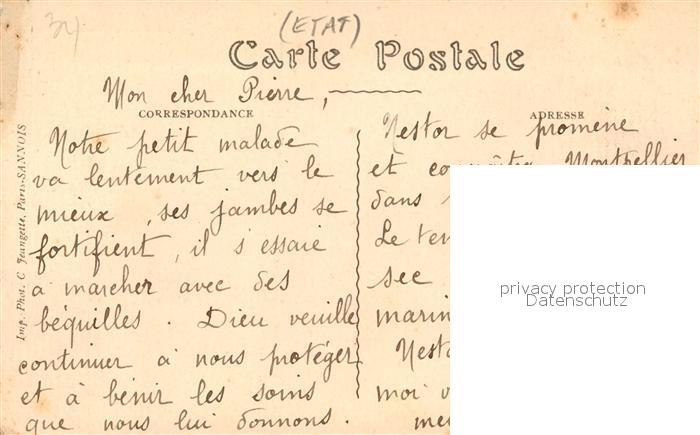 34
(ETAT)
Carte Postale
Mon cher Pierre,
CORRESPONDANCE
Notre petit malade
va lentement vers le
mieux, ses jambes se
fortifient, il s'essaie
à marcher avec des
béquilles. Dieu veuille
continuer à nous protéger
et à bénir les soins
que nous lui donnons.
ADRESSE
Nestor se promène
et Montpellier
dans
Le
sec
moi
Imp. Phot. C Jeangette, Paris-SANNOIS
privacy protection
Datenschutz